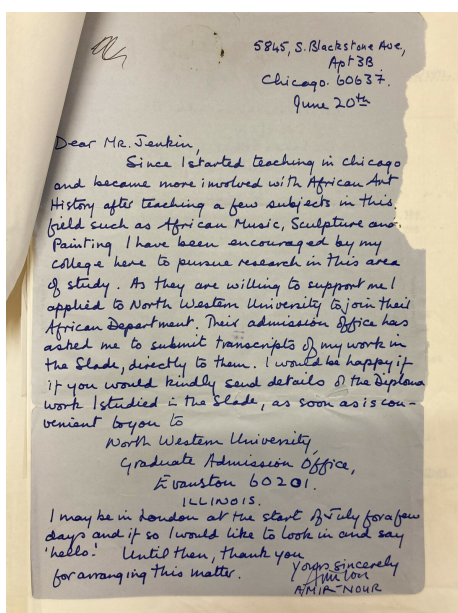 5845, S. Blackstone Ave,
Apt 3B
Chicago. 60637.
June 20th
Dear Mr. Jenkin,
Since I started teaching in Chicago
and became more involved with African Art
History after teaching a few subjects in this
field such as African Music, Sculpture and
Painting I have been encouraged by my
college here to pursue research in this area
of study. As they are willing to support me I
applied to North Western University to join their
African Department. Their admission office has
asked me to submit transcripts of my work in
the Slade, directly to them. I would be happy if
if you would kindly send details of the Diploma
work I studied in the Slade, as soon as is con-
venient to you to
North Western University,
Graduate Admission Office,
Evanston 60201.
ILLINOIS.
I may be in London at the start of July for a few
days and if so I would like to look in and say
'hello.' Until then, thank you
for arranging this matter.
Yours sincerely
AMIR-NOUR